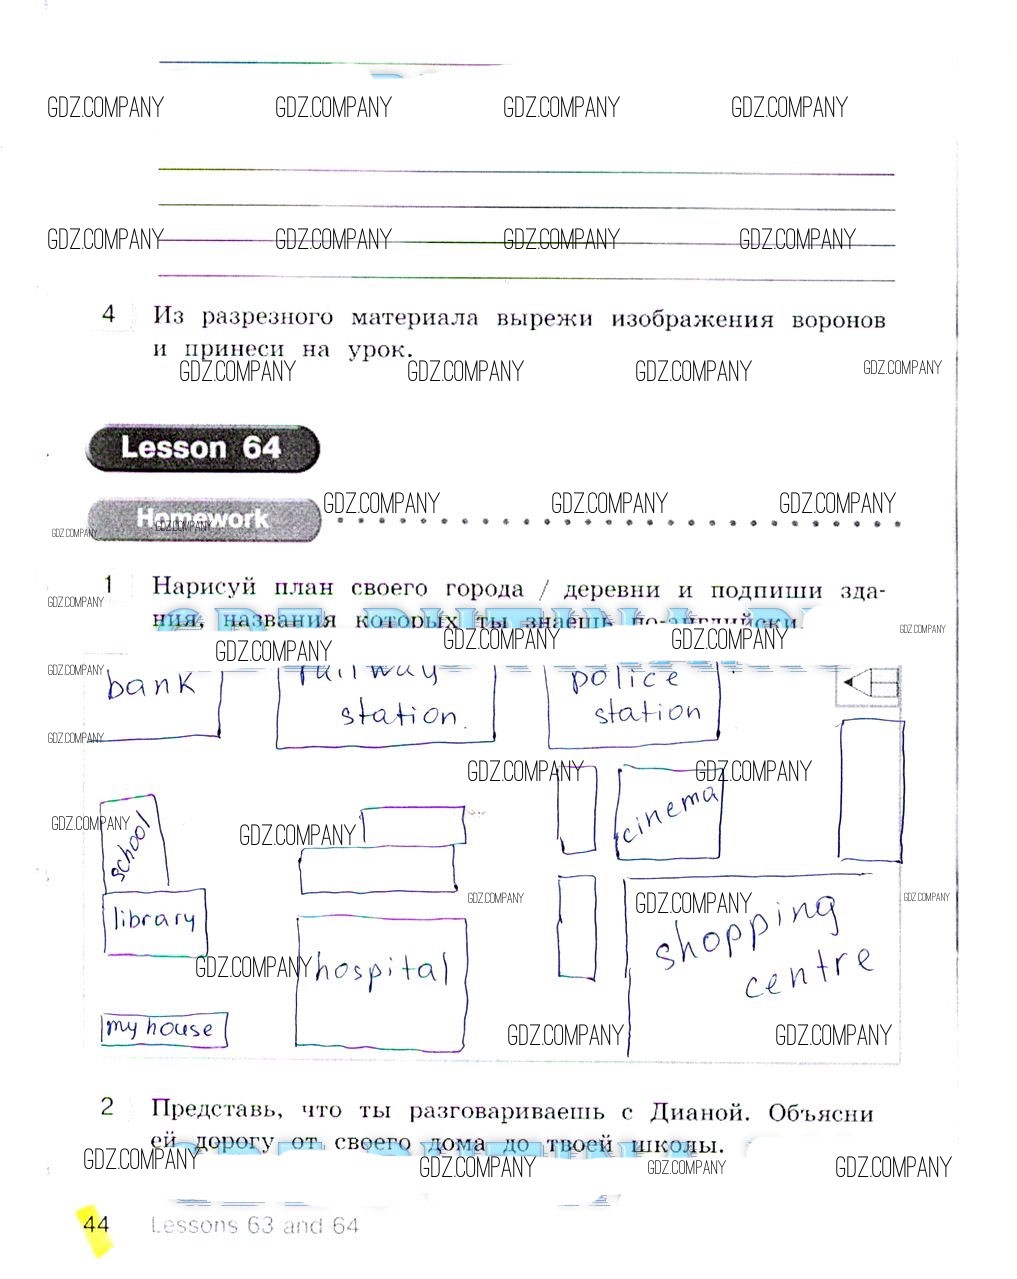 GDZ.COMPANY GDZ.COMPANY GDZ.COMPANY GDZ.COMPANY
GDZ.COMPANY GDZ.COMPANY GDZ.COMPANY GDZ.COMPANY
4 Из разрезного материала вырежи изображения воронов
и принеси на урок.
GDZ.COMPANY GDZ.COMPANY GDZ.COMPANY GDZ.COMPANY
Lesson 64
GDZ.COMPANY GDZ.COMPANY GDZ.COMPANY
Homework
GDZ.COMPANY GDZ.COMPANY
1 Нарисуй план своего города / деревни и подпиши зда-
GDZ.COMPANY
ния, названия которых ты знаешь по-английски.
GDZ.COMPANY GDZ.COMPANY GDZ.COMPANY GDZ.COMPANY
GDZ.COMPANY
bank railway police
station. station
GDZ.COMPANY
GDZ.COMPANY GDZ.COMPANY
cinema
GDZ.COMPANY GDZ.COMPANY
school
GDZ.COMPANY GDZ.COMPANY GDZ.COMPANY
library shopping
GDZ.COMPANY hospital centre
my house GDZ.COMPANY GDZ.COMPANY
2 Представь, что ты разговариваешь с Дианой. Объясни
ей дорогу от своего дома до твоей школы.
GDZ.COMPANY GDZ.COMPANY GDZ.COMPANY GDZ.COMPANY
44 Lessons 63 and 64